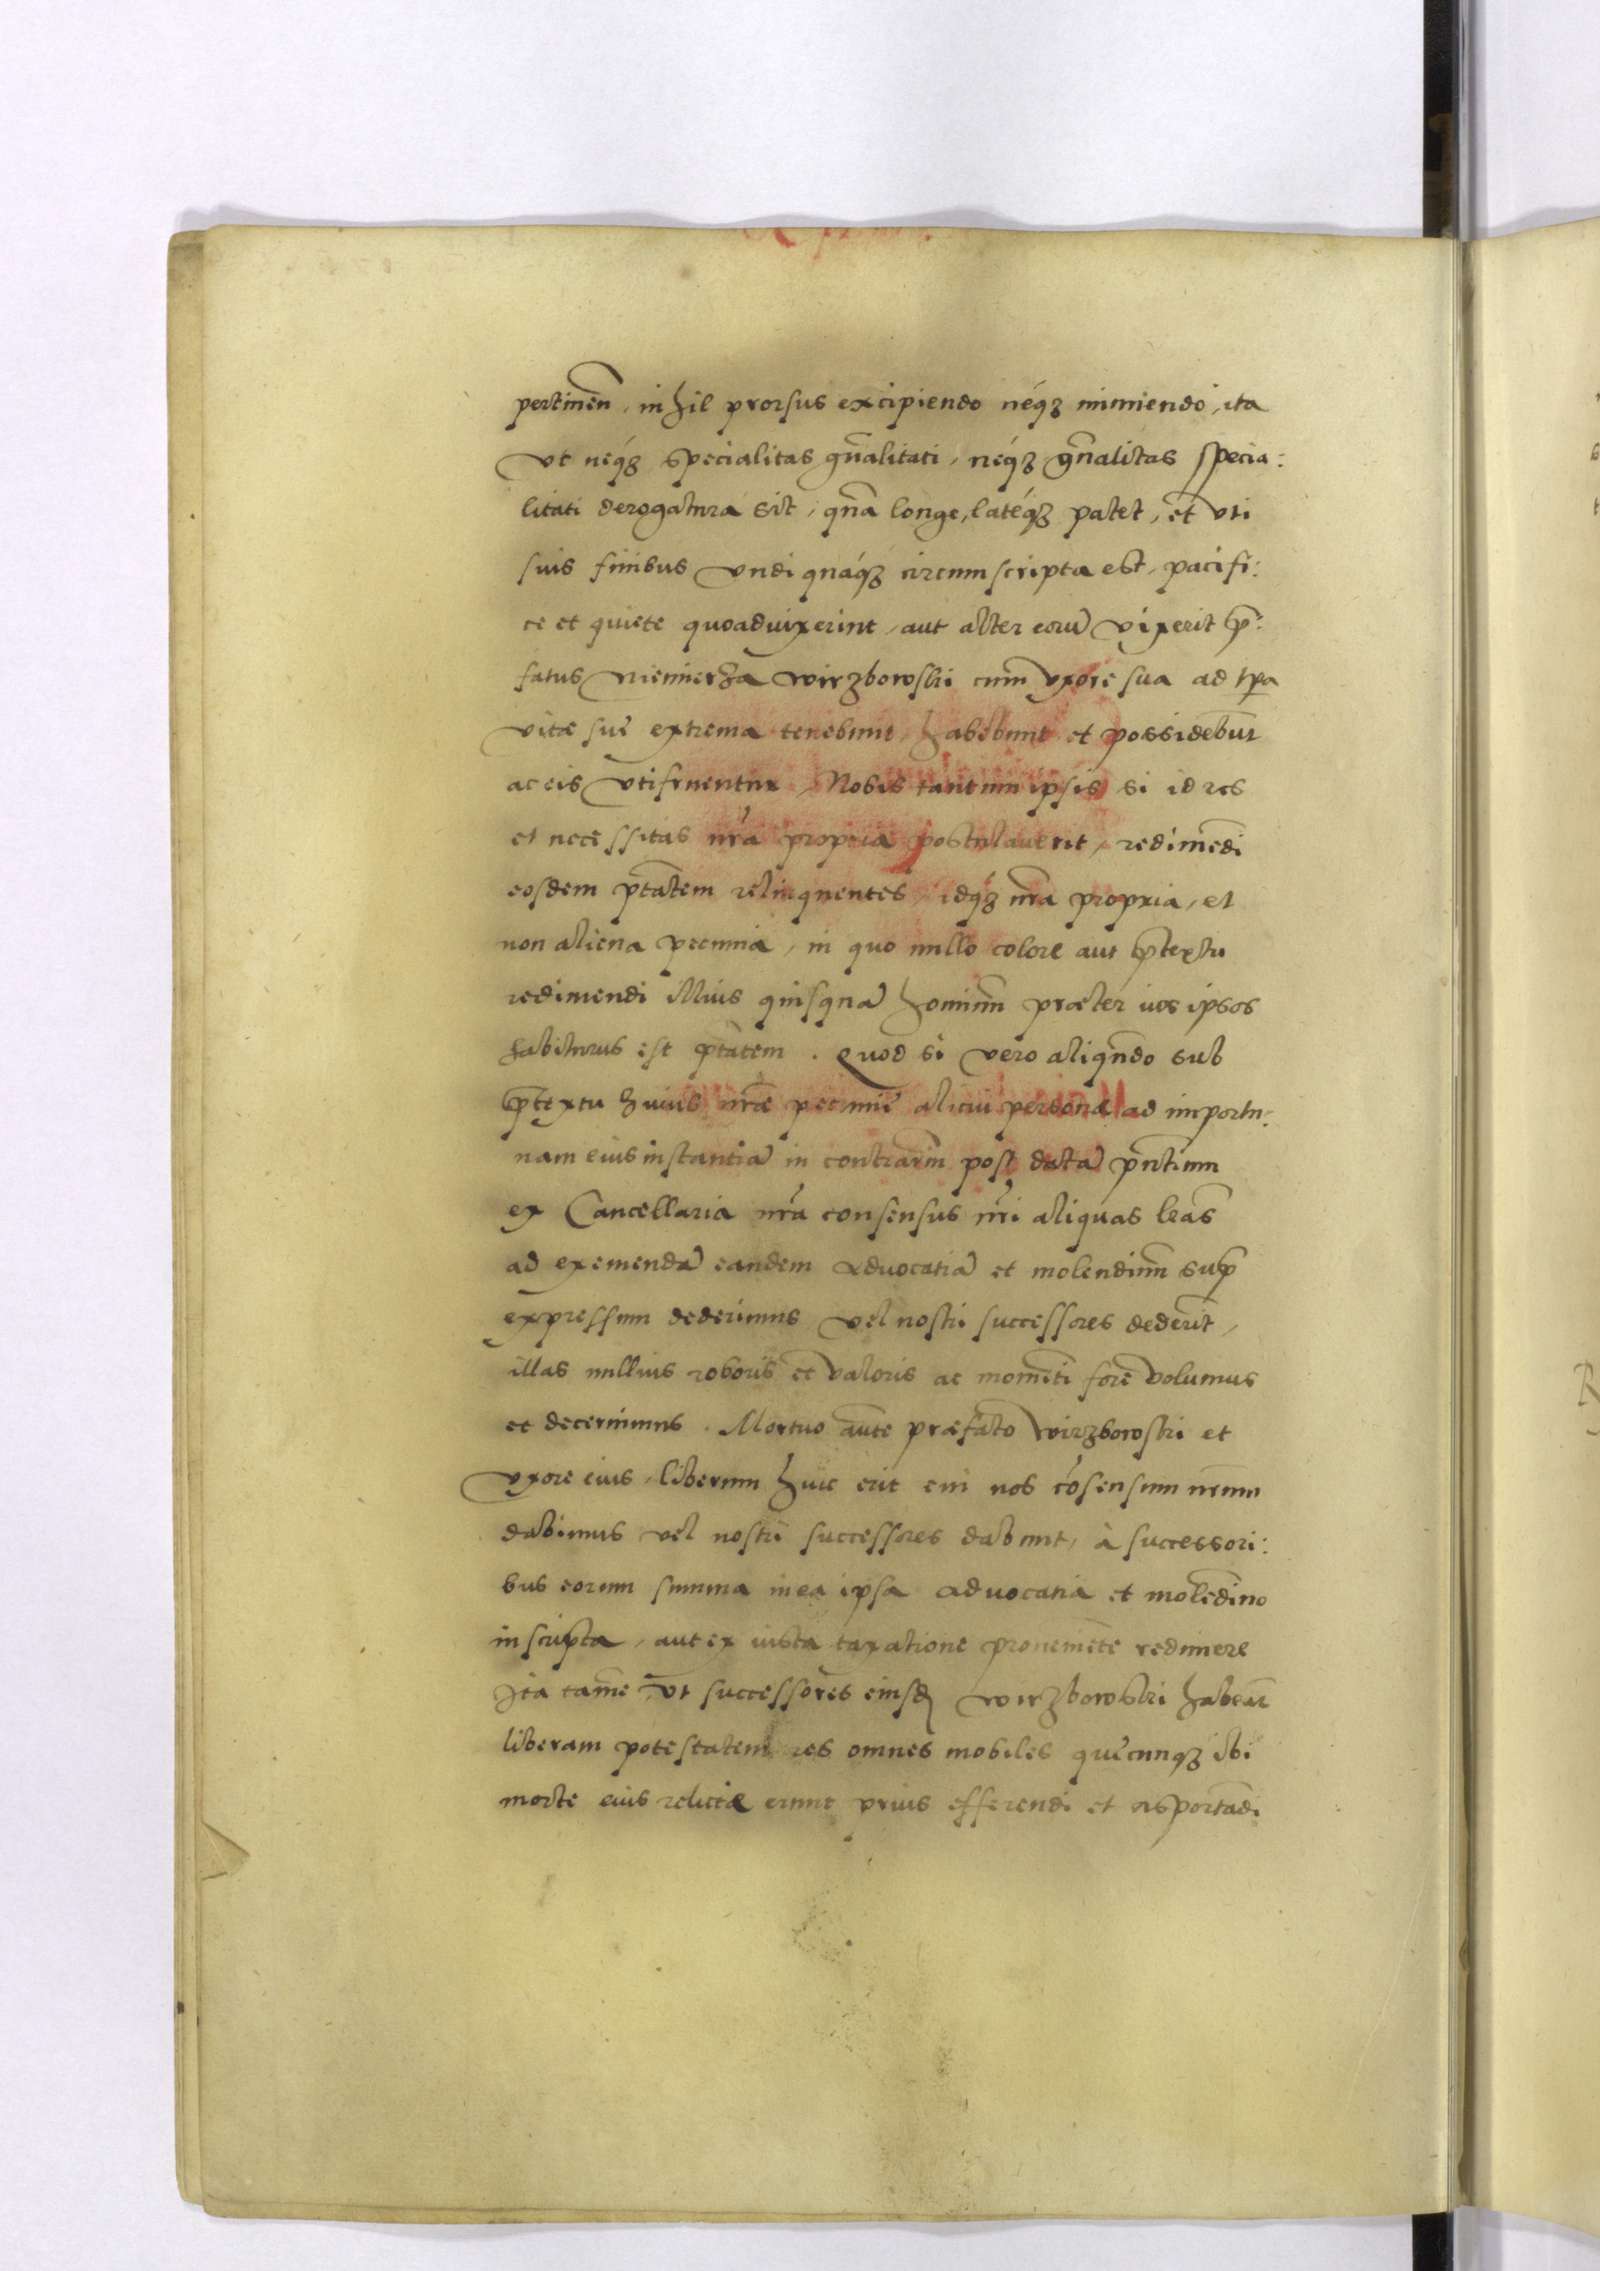 pertineñ, nihil prorsus excipiendo néq₃ minuendo, ita
vt néq₃ specialitas gñalitati, néq₃ gñalitas specia:
litati derogatura sit, qña longe, latéq₃ patet, et vti
suis finibus vndiquáq₃ circumscripta est, pacifi:
ce et quiete quoad vixerint, aut alter eorũ vixerit p̃:
fatus Niemierza Wirzbowski cum vxore sua ad tpa
vitæ suę extrema tenebunt, habebunt et possidebũt
ac eis vtifruentur, Nobis tantum ipsis si id res
et necessitas nr̃a propria postulauerit, redimẽdi
eosdem ptãtem relinquentes, idq́₃ nr̃a propria, et
non aliena pecunia, in quo nullo colore aut p̃textu
redimendi illius quisquã hominũ præter nos ipsos
habiturus est ptãtem. Quod si vero aliqñdo sub
p̃textu huius nr̃æ pecunię alicui personæ ad importu:
nam eius instantiã in contrariũ post datã pñtium
ex Cancellaria nr̃a consensus nr̃i aliquas lr̃as
ad exemendã eandem aduocatiã et molendinũ sup̃
expressum dederimus vel nostri successores dederĩt,
illas nullius roboris et valoris ac momẽti fore volumus
et decernimus. Mortuo aũte præfato Wirzbowski et
vxore eius, liberum huic erit cui nos cõsensum nr̃um
dabimus vel nostri successores dabunt, à successori:
bus eorum summa in ea ipsa aduocatia et molẽdino
inscripta, aut ex iusta taxatione proueniẽte redimere
Ita tamẽ, vt successores eiusd̃ Wirzbowski habeãt
liberam potestatem res omnes mobiles quęcunq₃ ibi
morte eius relictæ erunt prius efferendi et asportãdi